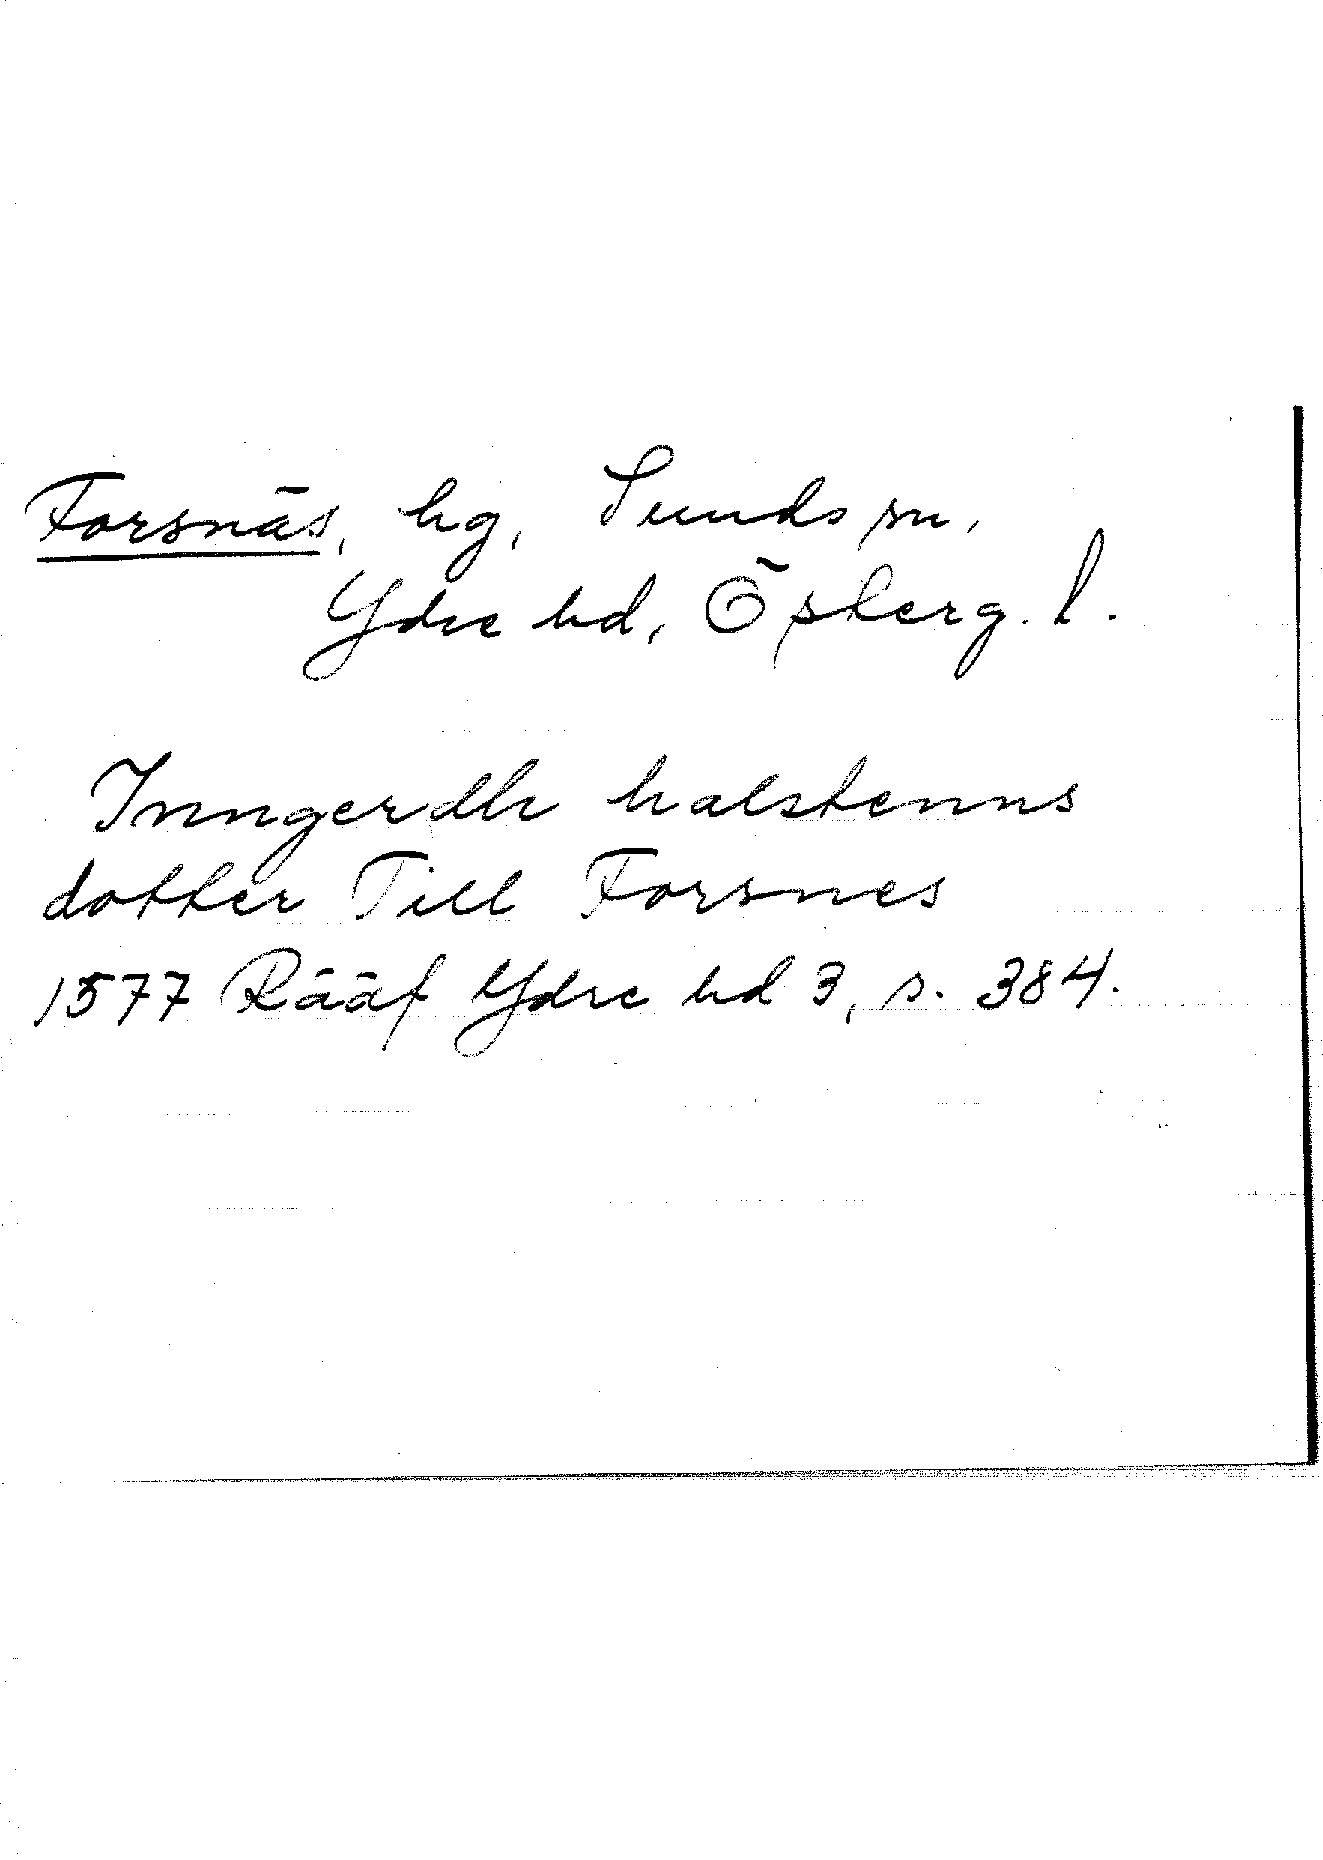 Forsnäs, hg, Sunds sn,
Ydre hd, Österg. l.
Inngerdh halstenns
dotter Till Forsnes
1577 Rääf Ydre hd 3, s. 384.